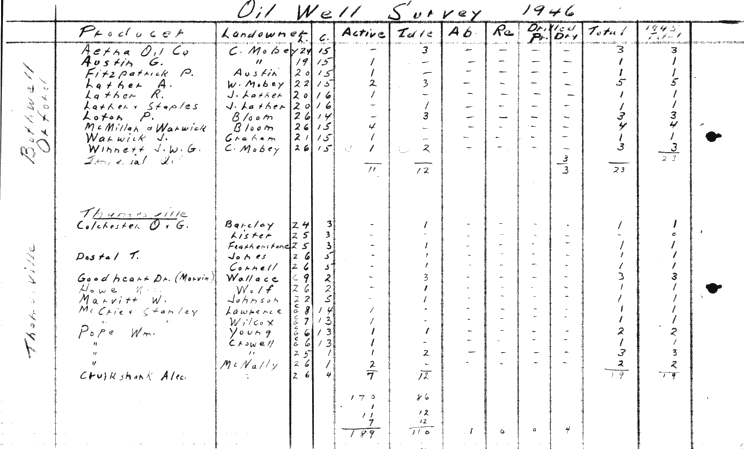 Oil Well Survey 1946
Producer Landowner L. C. Active Idle Ab. Re Drilled Pr. Dry Total 1945 Total
Bothwell
Orford
Aetna Oil Co C. Mobey 24 15 - 3 - - - - 3 3
Austin G. " 19 15 1 - - - - - 1 1
Fitzpatrick P. Austin 20 15 1 - - - - - 1 1
Lather A. W. Mobey 22 15 2 3 - - - - 5 5
Lather R. J. Lather 20 16 1 - - - - - 1 1
Lather & Staples J. Lather 20 16 - 1 - - - - 1 1
Loton P. Bloom 26 14 - 3 - - - - 3 3
McMillan & Warwick Bloom 26 15 4 - - - - - 4 4
Warwick J. Graham 21 15 1 - - - - - 1 1
Winnett J.W.G. C. Mobey 26 15 1 2 - - - - 3 3
Imperial O. 3 23
11 12 3 23
Thamesville
Thamesville
Colchester O & G. Barclay 24 3 - 1 - - - - 1 1
Lister 25 3 - - - - - -
Featherstone 25 3 - 1 - - - - 1 1
Dostal T. Jones 26 5 - 1 - - - - 1 1
Cornell 26 5 - 1 - - - - 1 1
Goodheart Dr. (Marvin) Wallace 2 - 3 - - - - 3 3
Howe Wolf 26 2 - 1 - - - - 1 1
Marvitt W. Johnson 22 5 - 1 - - - - 1 1
McCrie & Stanley Lawrence 14 1 - - - - - 1 1
" " Wilcox 13 1 - - - - - 1 1
Pope Wm. Young 13 1 1 - - - - 2 2
" Crowell 13 1 - - - - - 1
" " 25 1 1 2 - - - - 3 3
" McNally 26 1 2 - - - - - 2 2
Cruikshank Alec. 26 4 7 12 19 19
170 86
1
11 12
7 12
189 110 1 0 0 4